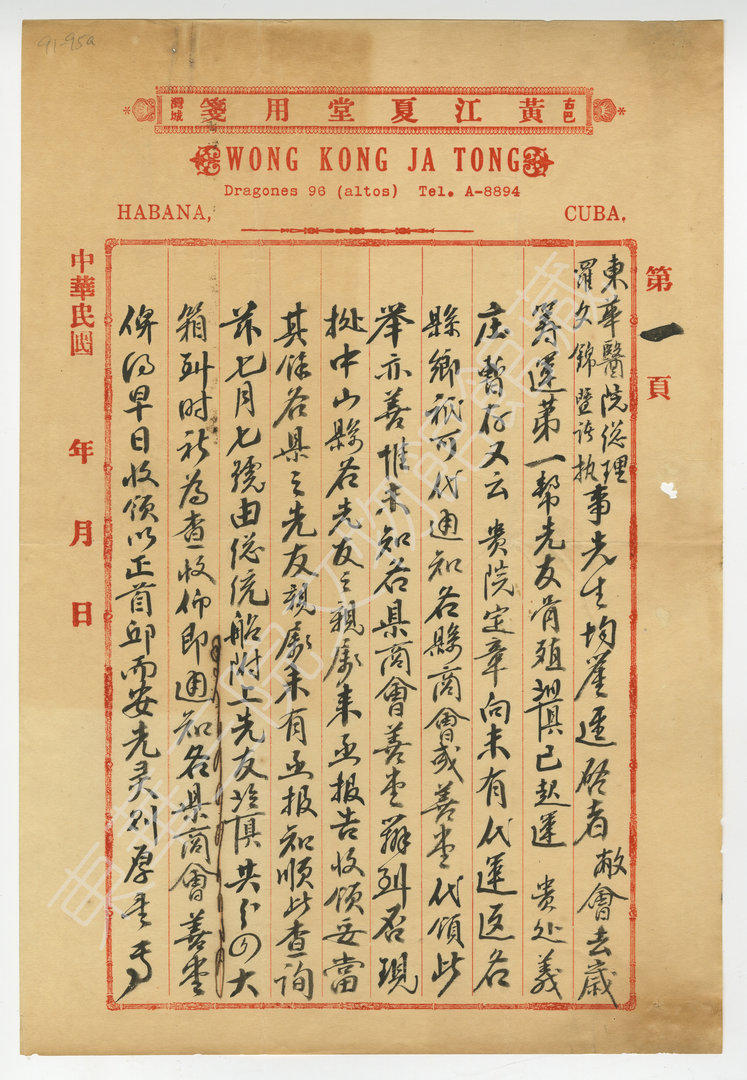 91-95a
古巴 黃江夏堂用箋 灣城
WONG KONG JA TONG
Dragones 96 (altos) Tel. A-8894
HABANA, CUBA.
第一頁
東華醫院總理
羅文錦暨諸執事先生均鑒逕啓者 敝會去歲
籌運第一幫先友骨殖 俱已起運 貴处義
庄暫存又云 貴院定章向未有代運返各
縣鄉祇可代通知各縣商會或善堂代領此
举亦善惟未知各县商會善堂辦到否現
中山縣各先友之親屬来函报告收領妥當
其餘各县之先友親屬未有函报知順此查詢
茲七月七號由總統船附上先友 共 大
箱到时祈為查收仰即通知各县商會善堂
俾得早日收領以正首邱而安先灵则厚
中華民國 年 月 日
東華三院文物館藏